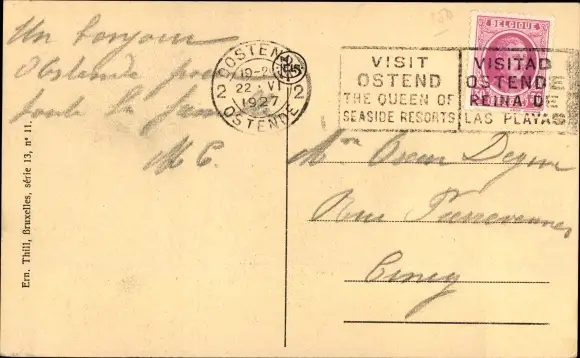 Un bonjour
d'Ostende pour
toute la fam
M C.
OOSTENDE
19-20
22 VI
1927
2 2
OSTENDE
VISIT
OSTEND
THE QUEEN OF
SEASIDE RESORTS
VISITAD
OSTENDE
REINA D
LAS PLAYAS
BELGIQUE
Mr Oscar
Rue Piervenne
Ciney
Ern. Thill, Bruxelles, série 13, n° 11.